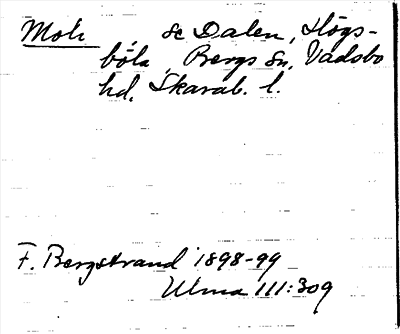 Moh, se Dalen, Högs-
böla, Bergs sn, Vadsbo
hd, Skarab. l.
F. Bergstrand 1898-99
Ulma 111:309